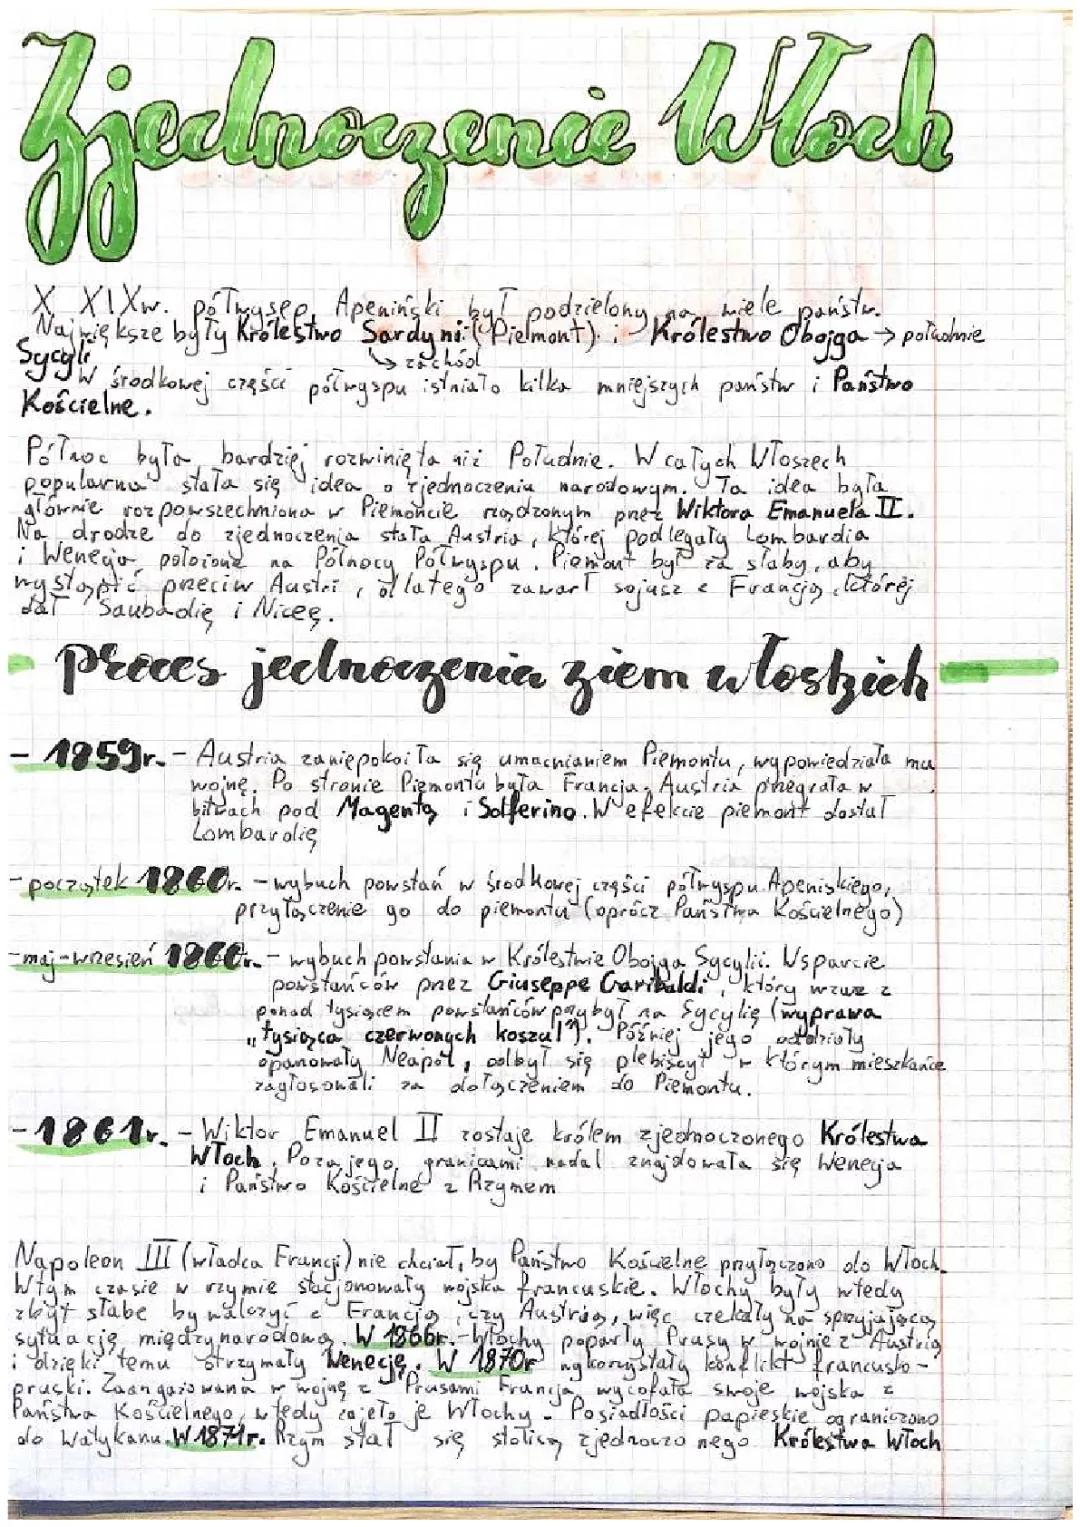 Zjednoczenie Włoch
X XIXw. półwysep Apeniński był podzielony na wiele państw.
Największe były Królestwo Sardynii (Piemont) i Królestwo Obojga → południe
Sycylii ↳ zachód
W środkowej części półwyspu istniało kilka mniejszych państw i Państwo
Kościelne.
Północ była bardziej rozwinięta niż Południe. W całych Włoszech
popularna stała się idea o zjednoczeniu narodowym. Ta idea była
głównie rozpowszechniona w Piemoncie rządzonym przez Wiktora Emanuela II.
Na drodze do zjednoczenia stała Austria, której podlegały Lombardia
i Wenecja położone na Północy Półwyspu. Piemont był za słaby, aby
wystąpić przeciw Austri, dlatego zawarł sojusz z Francją, której
dał Saubadię i Niceę.
- proces jednoczenia ziem włoskich -
- 1859r. - Austria zaniepokoiła się umacnianiem Piemontu, wypowiedziała mu
wojnę. Po stronie Piemontu była Francja. Austria przegrała w
bitwach pod Magentą i Solferino. W efekcie piemont dostał
Lombardię
- początek 1860r. - wybuch powstań w środkowej części półwyspu Apeniskiego,
przyłączenie go do piemontu (oprócz Państwa Kościelnego)
- maj-wrzesień 1860r. - wybuch powstania w Królestwie Obojga Sycylii. Wsparcie
powstańców przez Giuseppe Garibaldi, który wraz z
ponad tysiącem powstańców przybył na Sycylię (wyprawa
„tysiąca czerwonych koszul"). Później jego oddziały
opanowały Neapol, odbył się plebiscyt w którym mieszkańce
zagłosowali za dołączeniem do Piemontu.
- 1861r. - Wiktor Emanuel II zostaje królem zjednoczonego Królestwa
Włoch. Poza jego granicami nadal znajdowała się Wenecja
i Państwo Kościelne z Rzymem
Napoleon III (władca Francji) nie chciał, by Państwo Kościelne przyłączono do Włoch.
W tym czasie w rzymie stacjonowały wojska francuskie. Włochy były wtedy
zbyt słabe by walczyć z Francją, czy Austrią, więc czekały na sprzyjającą
sytuację międzynarodową. W 1866r. - Włochy poparły Prusy w wojnie z Austrią
i dzięki temu otrzymały Wenecję. W 1870r wykorzystały konflikt francusko-
pruski. Zaangażowana w wojnę z Prusami Francja wycofała swoje wojska z
Państwa Kościelnego, wtedy zajęło je Włochy. Posiadłości papieskie ograniczono
do Watykanu. W 1871r. Rzym stał się stolicą zjednoczonego Królestwa Włoch